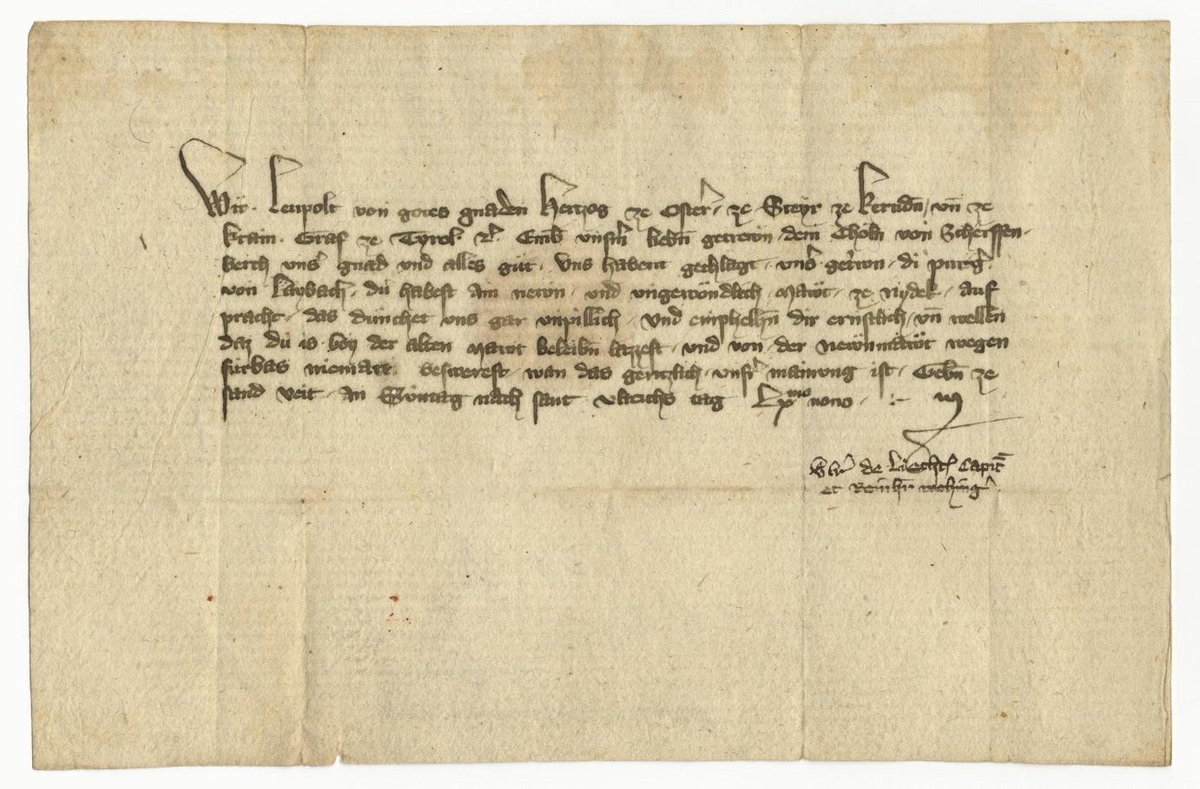 Wir Leupolt von gotes gnaden Hertzog ze Osterr ze Steyr ze Kernd̄n vn̄ ze
Krain Graf ze Tyrol etc. Emb̄ unserm lieb̄n getrewn dem Chol̄n von Scherffen
berch unser gnad und alles gut Uns habent gechlagt unser getrewn di purger
von Laybach du habest ain newn und ungewöndlich Mawt ze Nydek auf
pracht das dunchet uns gar unpillich Und emphelh̄n dir ernstlich vn̄ wellen
daz du is bey der alten Mawt beleib̄n lazzest und von der newnmawt wegen
furbas niemant beswerest wan das gentzlich unser mainung ist Geb̄n ze
sand Veit An Sunntag nach sant Ulreichs tag Lxmo nono
de Liechtst Capit
et Reinh̄r wehinger